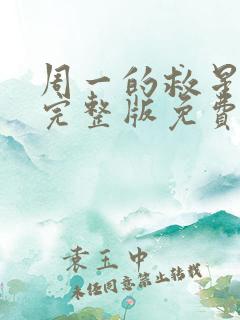 周一的救星
完整版免费
袁玉中
未经同意禁止转载